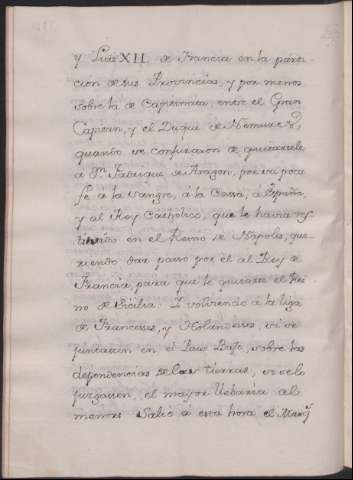 y Luis XII. de Francia en la parti-
cion de sus Provincias, y por menos
sobre la de Capitinata, entre el Gran
Capitan, y el Duque de Nemurs,
quando se confiaron de quitarsele
à Dn. Fadrique de Aragon, por su poca
fe à la Sangre, à la Cassa, à España,
y al Rey Catholico, que le havia res-
tituido en el Reino de Napoles, que-
riendo dar passo por èl al Rey de
Francia, para que le quitasse el Rei-
no de Sicilia. I volviendo à la liga
de Franceses, y Holandeses, si se
juntaran en el Pais Bajo, sobre las
dependencias de las tierras, si se lo
juzgassen, el mayor Usbaria al
menor. Saliò à esta hora el Marq